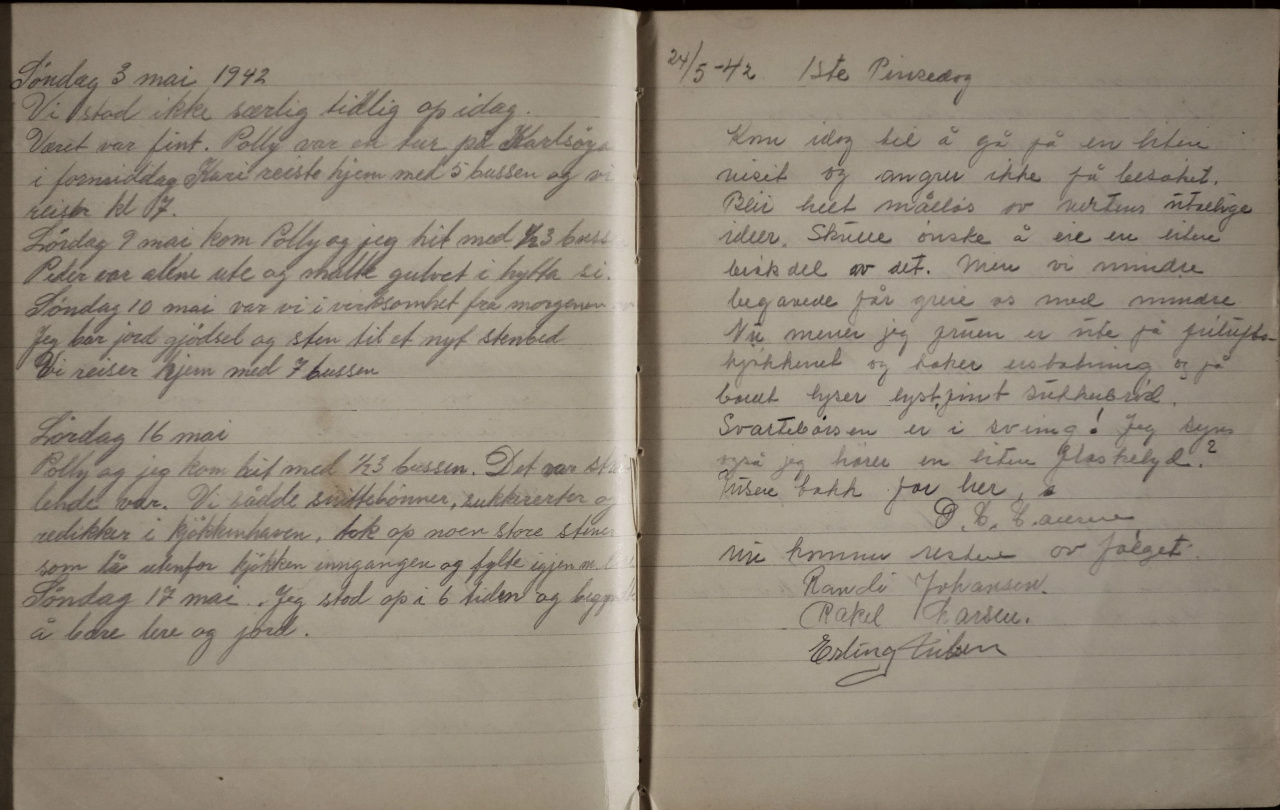 Søndag 3 mai 1942
Vi stod ikke særlig tidlig op idag.
Været var fint. Polly var en tur på Karlsøya
i formiddag Kari reiste hjem med 5 bussen og vi
reiser kl 17.
Lørdag 9 mai kom Polly og jeg hit med ½3 buss
Peder var allene ute og malte gulvet i hytta si.
Søndag 10 mai var vi i virksomhet fra morgenen
Jeg bar jord gjødsel og sten til et nyt stenbed
Vi reiser hjem med 7 bussen
Lørdag 16 mai
Polly og jeg kom hit med ½3 bussen. Det var
lende vær. Vi sådde snittebønner, sukkererter og
redikker i kjøkkenhaven, tok op noen store stener
som lå utenfor kjøkken inngangen og fylte igjen m.
Søndag 17 mai. Jeg stod op i 6 tiden og begynte
å bære lere og jord.
24/5-42 1ste Pinsedag
Kom idag til å gå på en liten
visit og angrer ikke på besøket.
Blir helt målløs av vertens utallige
ideer. Skulle ønske å eie en liten
brøkdel av det. Men vi mindre
begavede får greie os med mindre
Nu mener jeg fruen er ute på frilufts-
kjøkkenet og koker erstatning og på
bordet lyser lyst, fint sukkerbrød.
Svartebørsen er i sving! Jeg syns
også jeg hører en liten flaskelyd?
Tusen takk for her,
nu kommer resten av følget.
Randi Johansen.
Rakel Larsen.
Erling